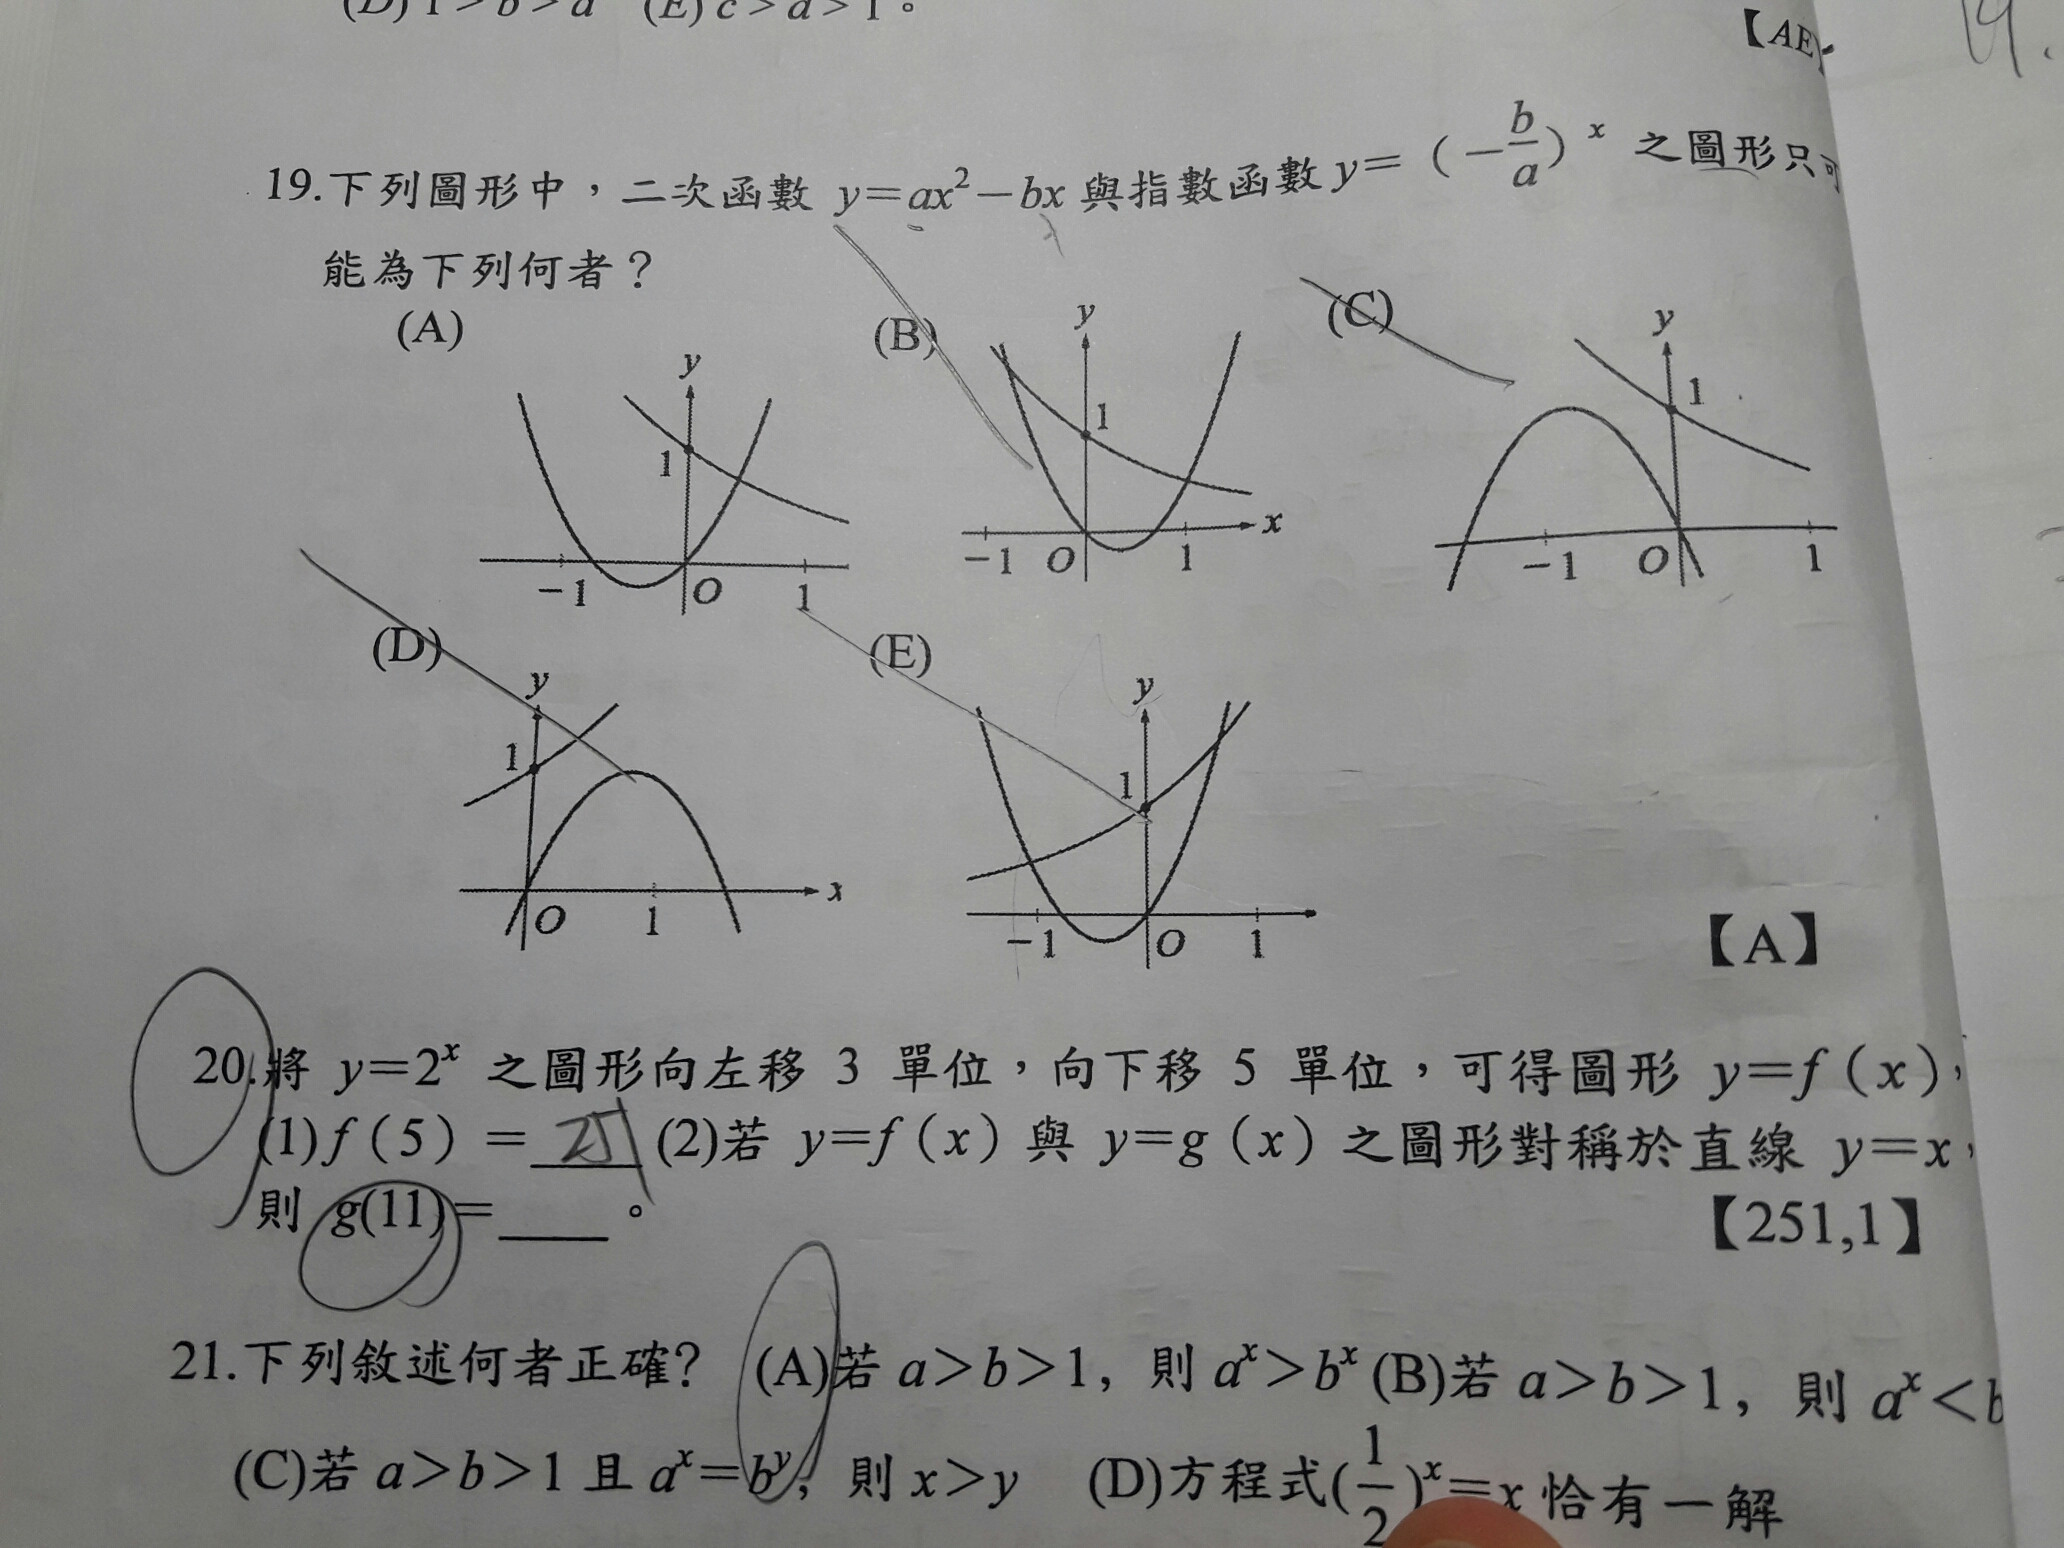 (D) 1 > b > a (E) c > a > 1。
【AE】
19.下列圖形中，二次函數 y=ax²－bx 與指數函數 y= (－b/a)ˣ 之圖形只可
能為下列何者？
(A)
(B)
(C)
y
1
－1 O 1
y
1
－1 O 1 x
y
1
－1 O 1
(D)
(E)
y
1
O 1 x
y
1
－1 O 1
【A】
20.將 y=2ˣ 之圖形向左移 3 單位，向下移 5 單位，可得圖形 y=f (x)，
(1) f (5) = 251 (2)若 y=f (x) 與 y=g (x) 之圖形對稱於直線 y=x，
則 g(11)=____。
【251,1】
21.下列敘述何者正確? (A)若 a>b>1, 則 aˣ>bˣ (B)若 a>b>1, 則 aˣ<b
(C)若 a>b>1 且 aˣ=bʸ, 則 x>y (D)方程式(1/2)ˣ=x 恰有一解